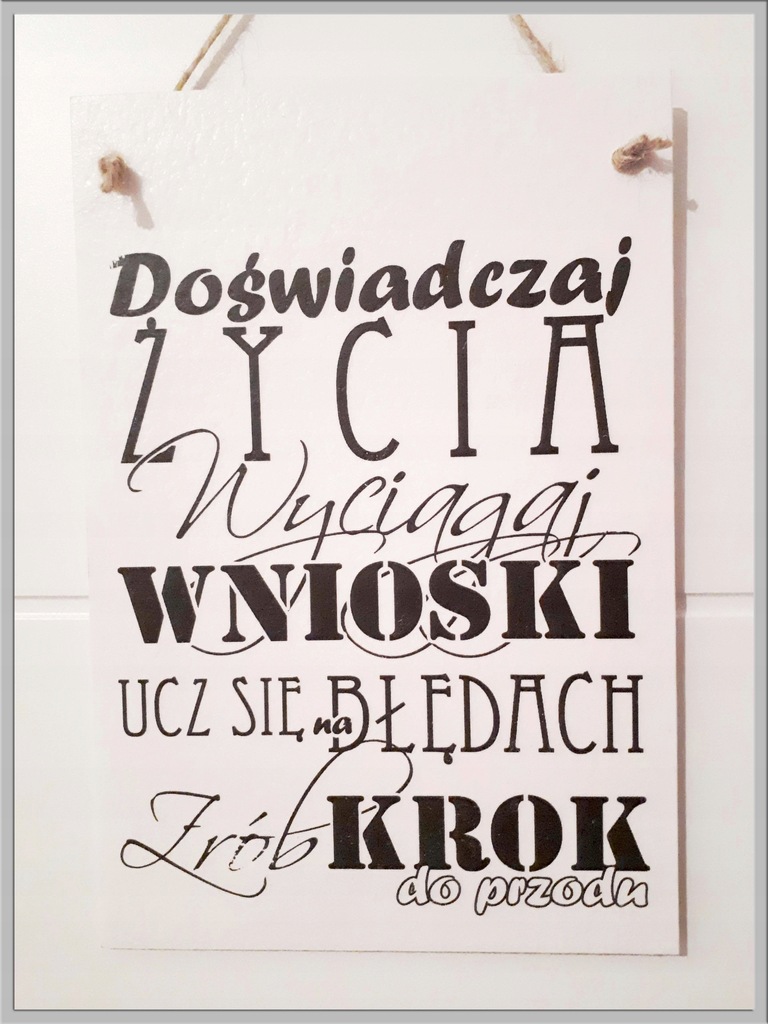 Doświadczaj
ŻYCIA
Wyciągaj
WNIOSKI
UCZ SIĘ na BŁĘDACH
Zrób KROK
do przodu